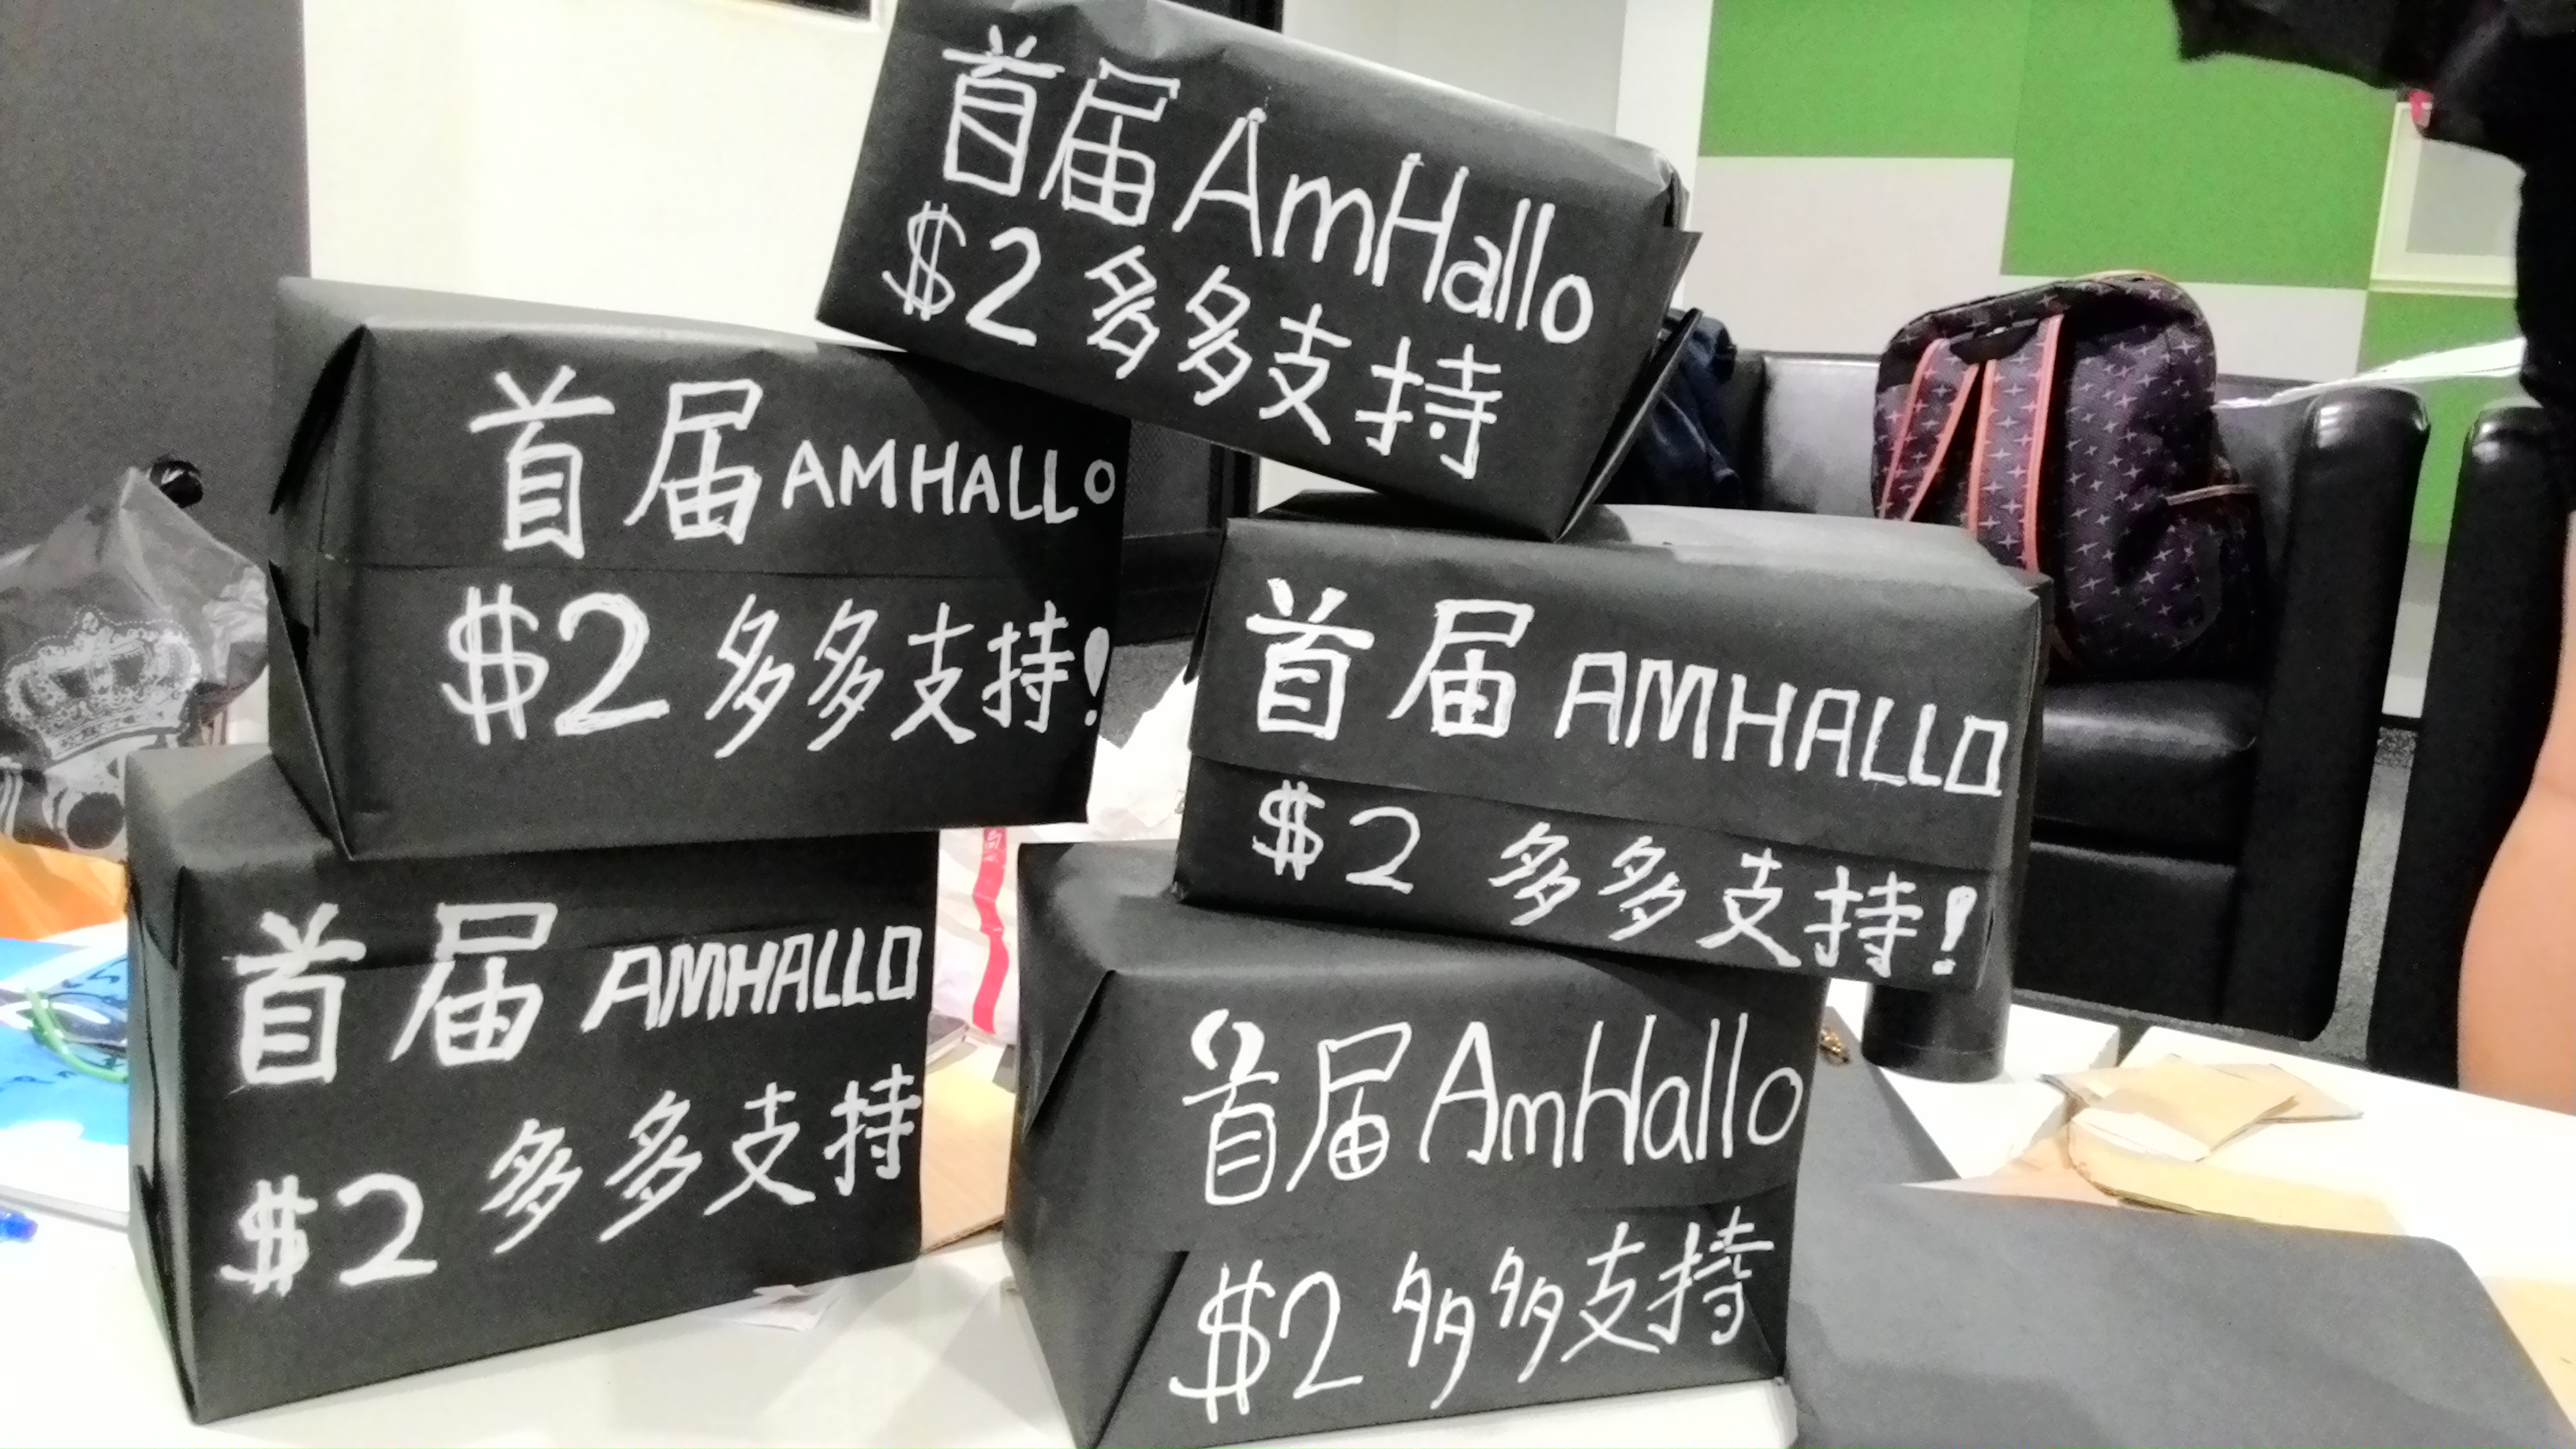 首届AmHallo
$2多多支持
首届AMHALLO
$2多多支持!
首届AMHALLO
$2多多支持!
首届AMHALLO
$2多多支持
首届AmHallo
$2多多支持